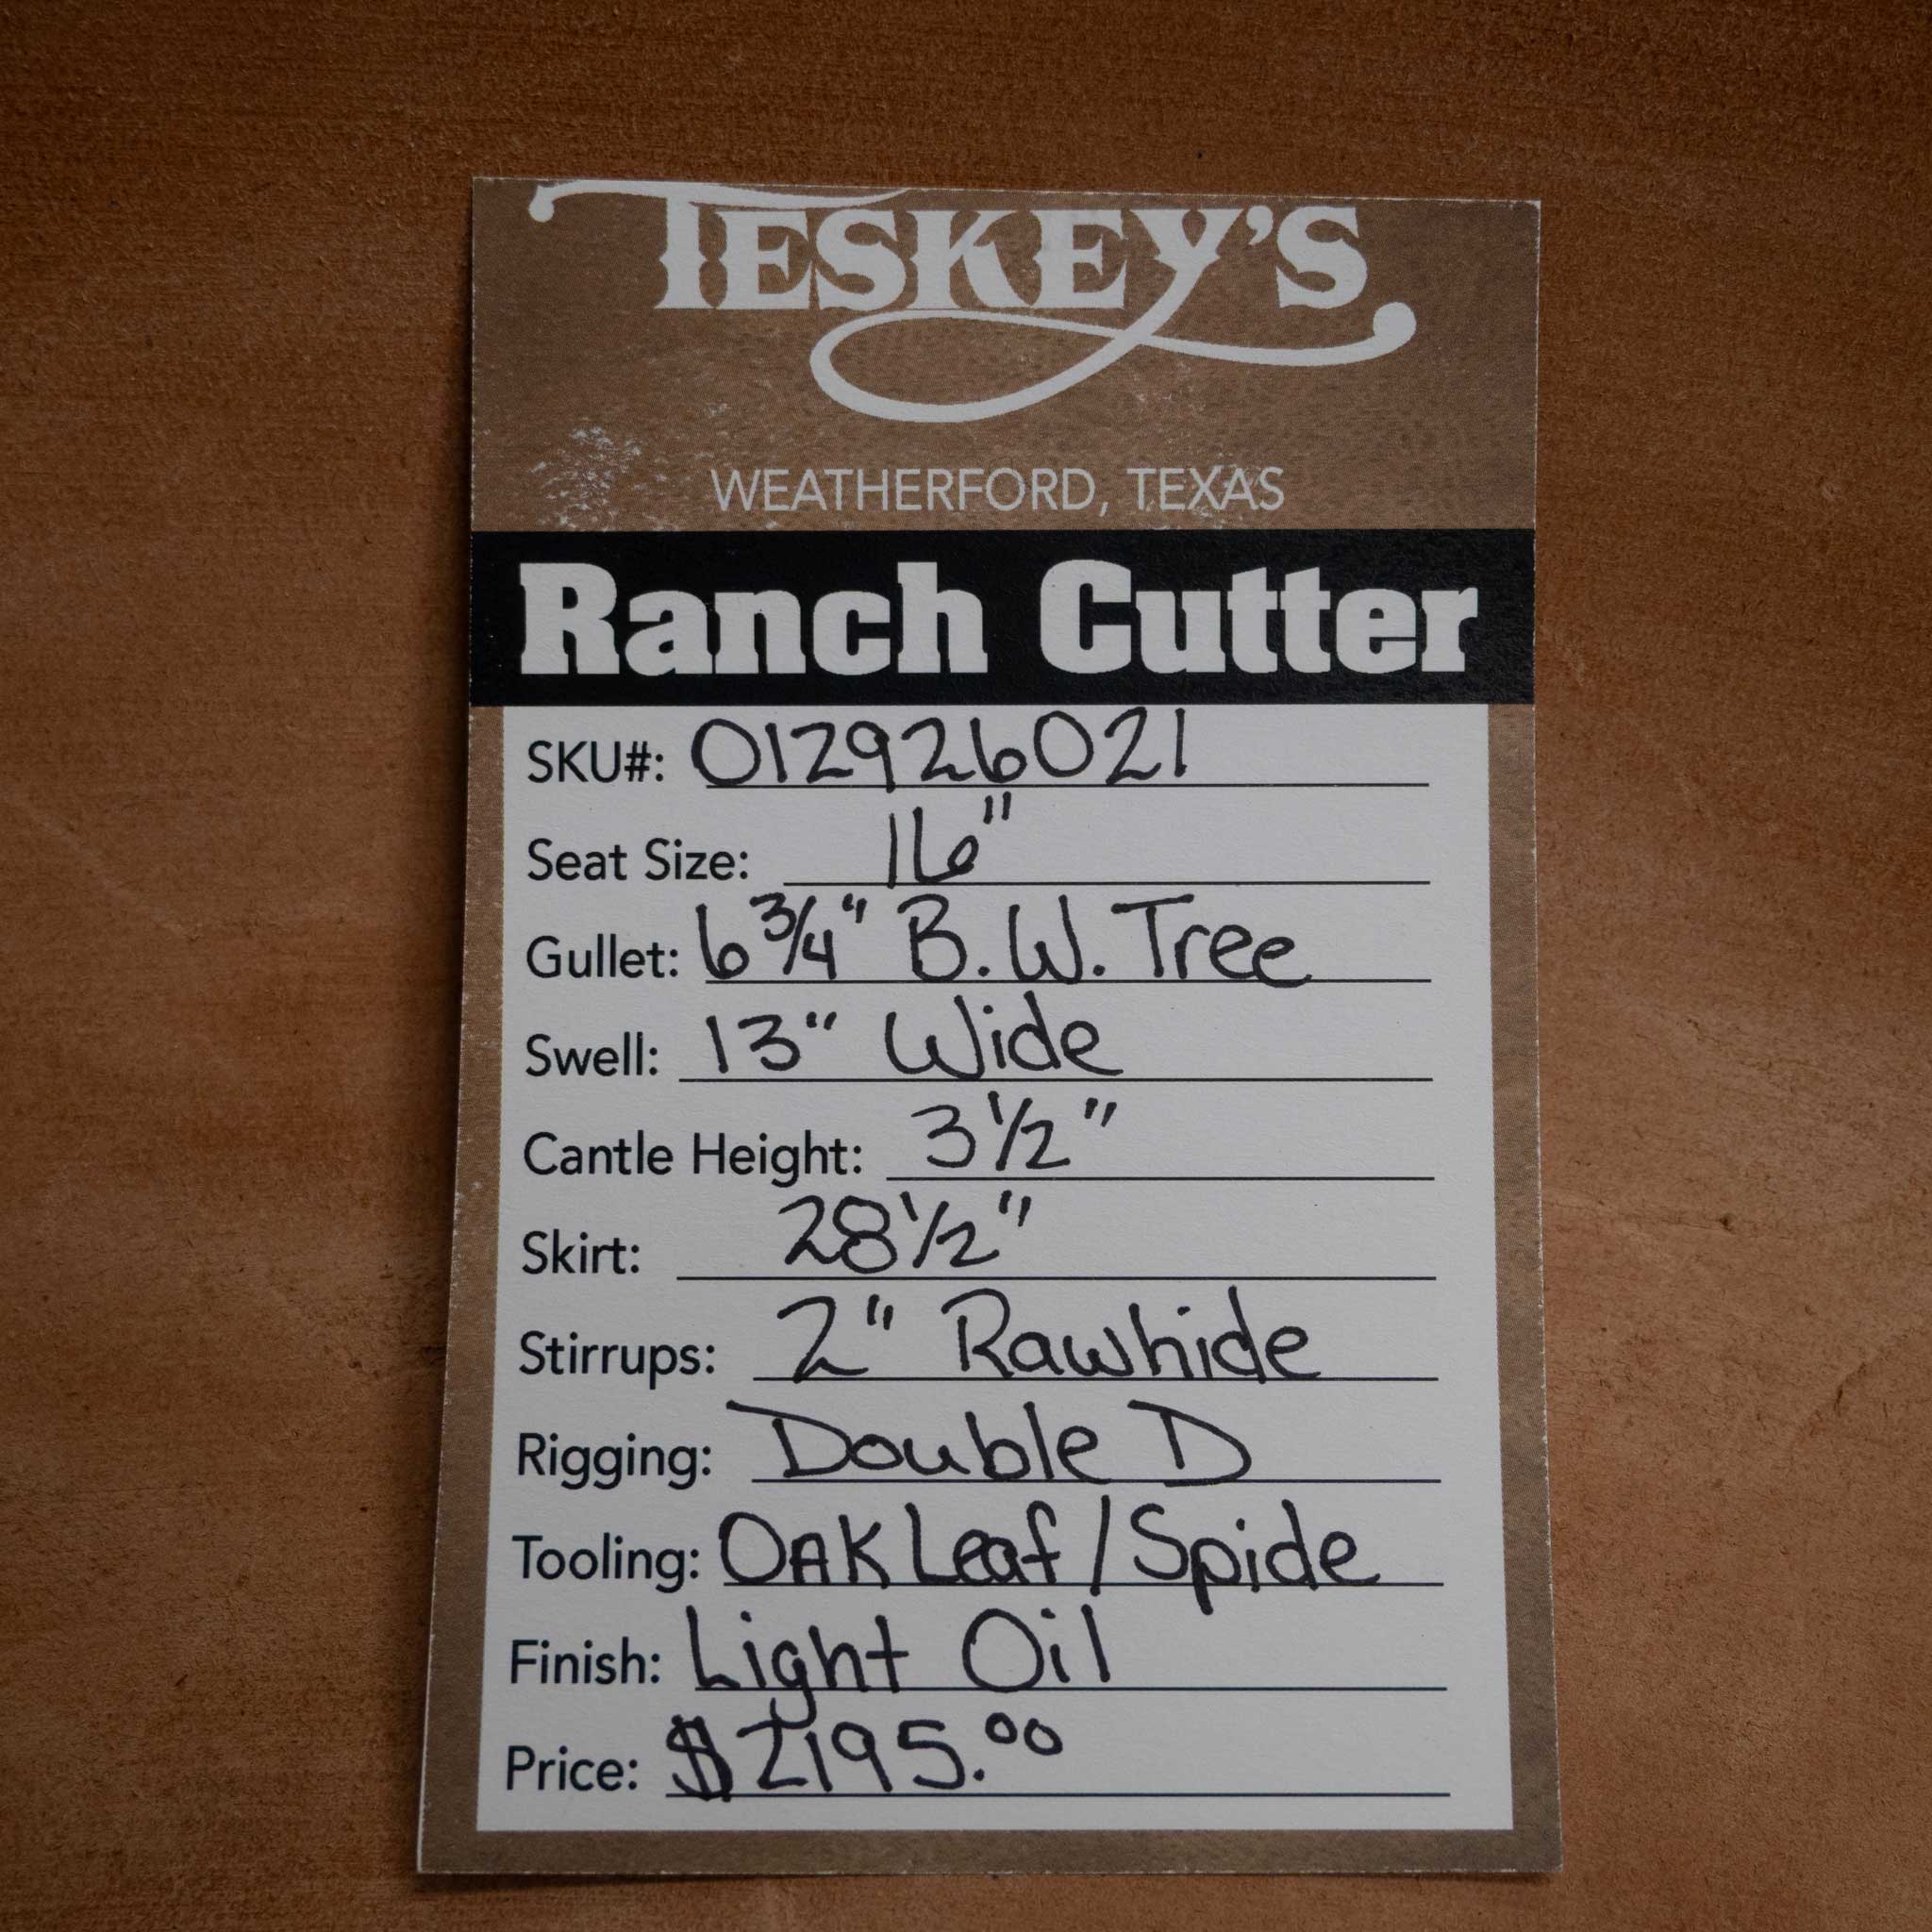 TESKEY'S
WEATHERFORD, TEXAS
Ranch Cutter
SKU#: 012926021
Seat Size: 16"
Gullet: 6 3/4" B.W. Tree
Swell: 13" Wide
Cantle Height: 3 1/2"
Skirt: 28 1/2"
Stirrups: 2" Rawhide
Rigging: Double D
Tooling: OAK Leaf/Spide
Finish: Light Oil
Price: $2195.00